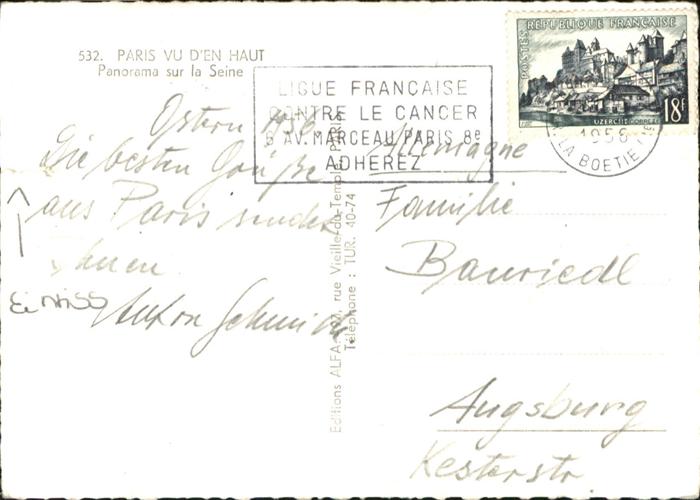 532. PARIS VU D'EN HAUT
Panorama sur la Seine
LIGUE FRANCAISE
CONTRE LE CANCER
6 AV. MARCEAU PARIS 8e
ADHEREZ
POSTES
REPUBLIQUE FRANÇAISE
UZERCHE
18F
1956
LA BOETIE
Ostern 1956
Die besten Grüße
aus Paris sendet
Ihnen
Anton Schmid
Einriss
Editions ALFA, rue Vieille-du-Temple, PARIS
Téléphone : TUR. 40-74
Allemagne
Familie
Bauriedl
Augsburg
Kesterstr.